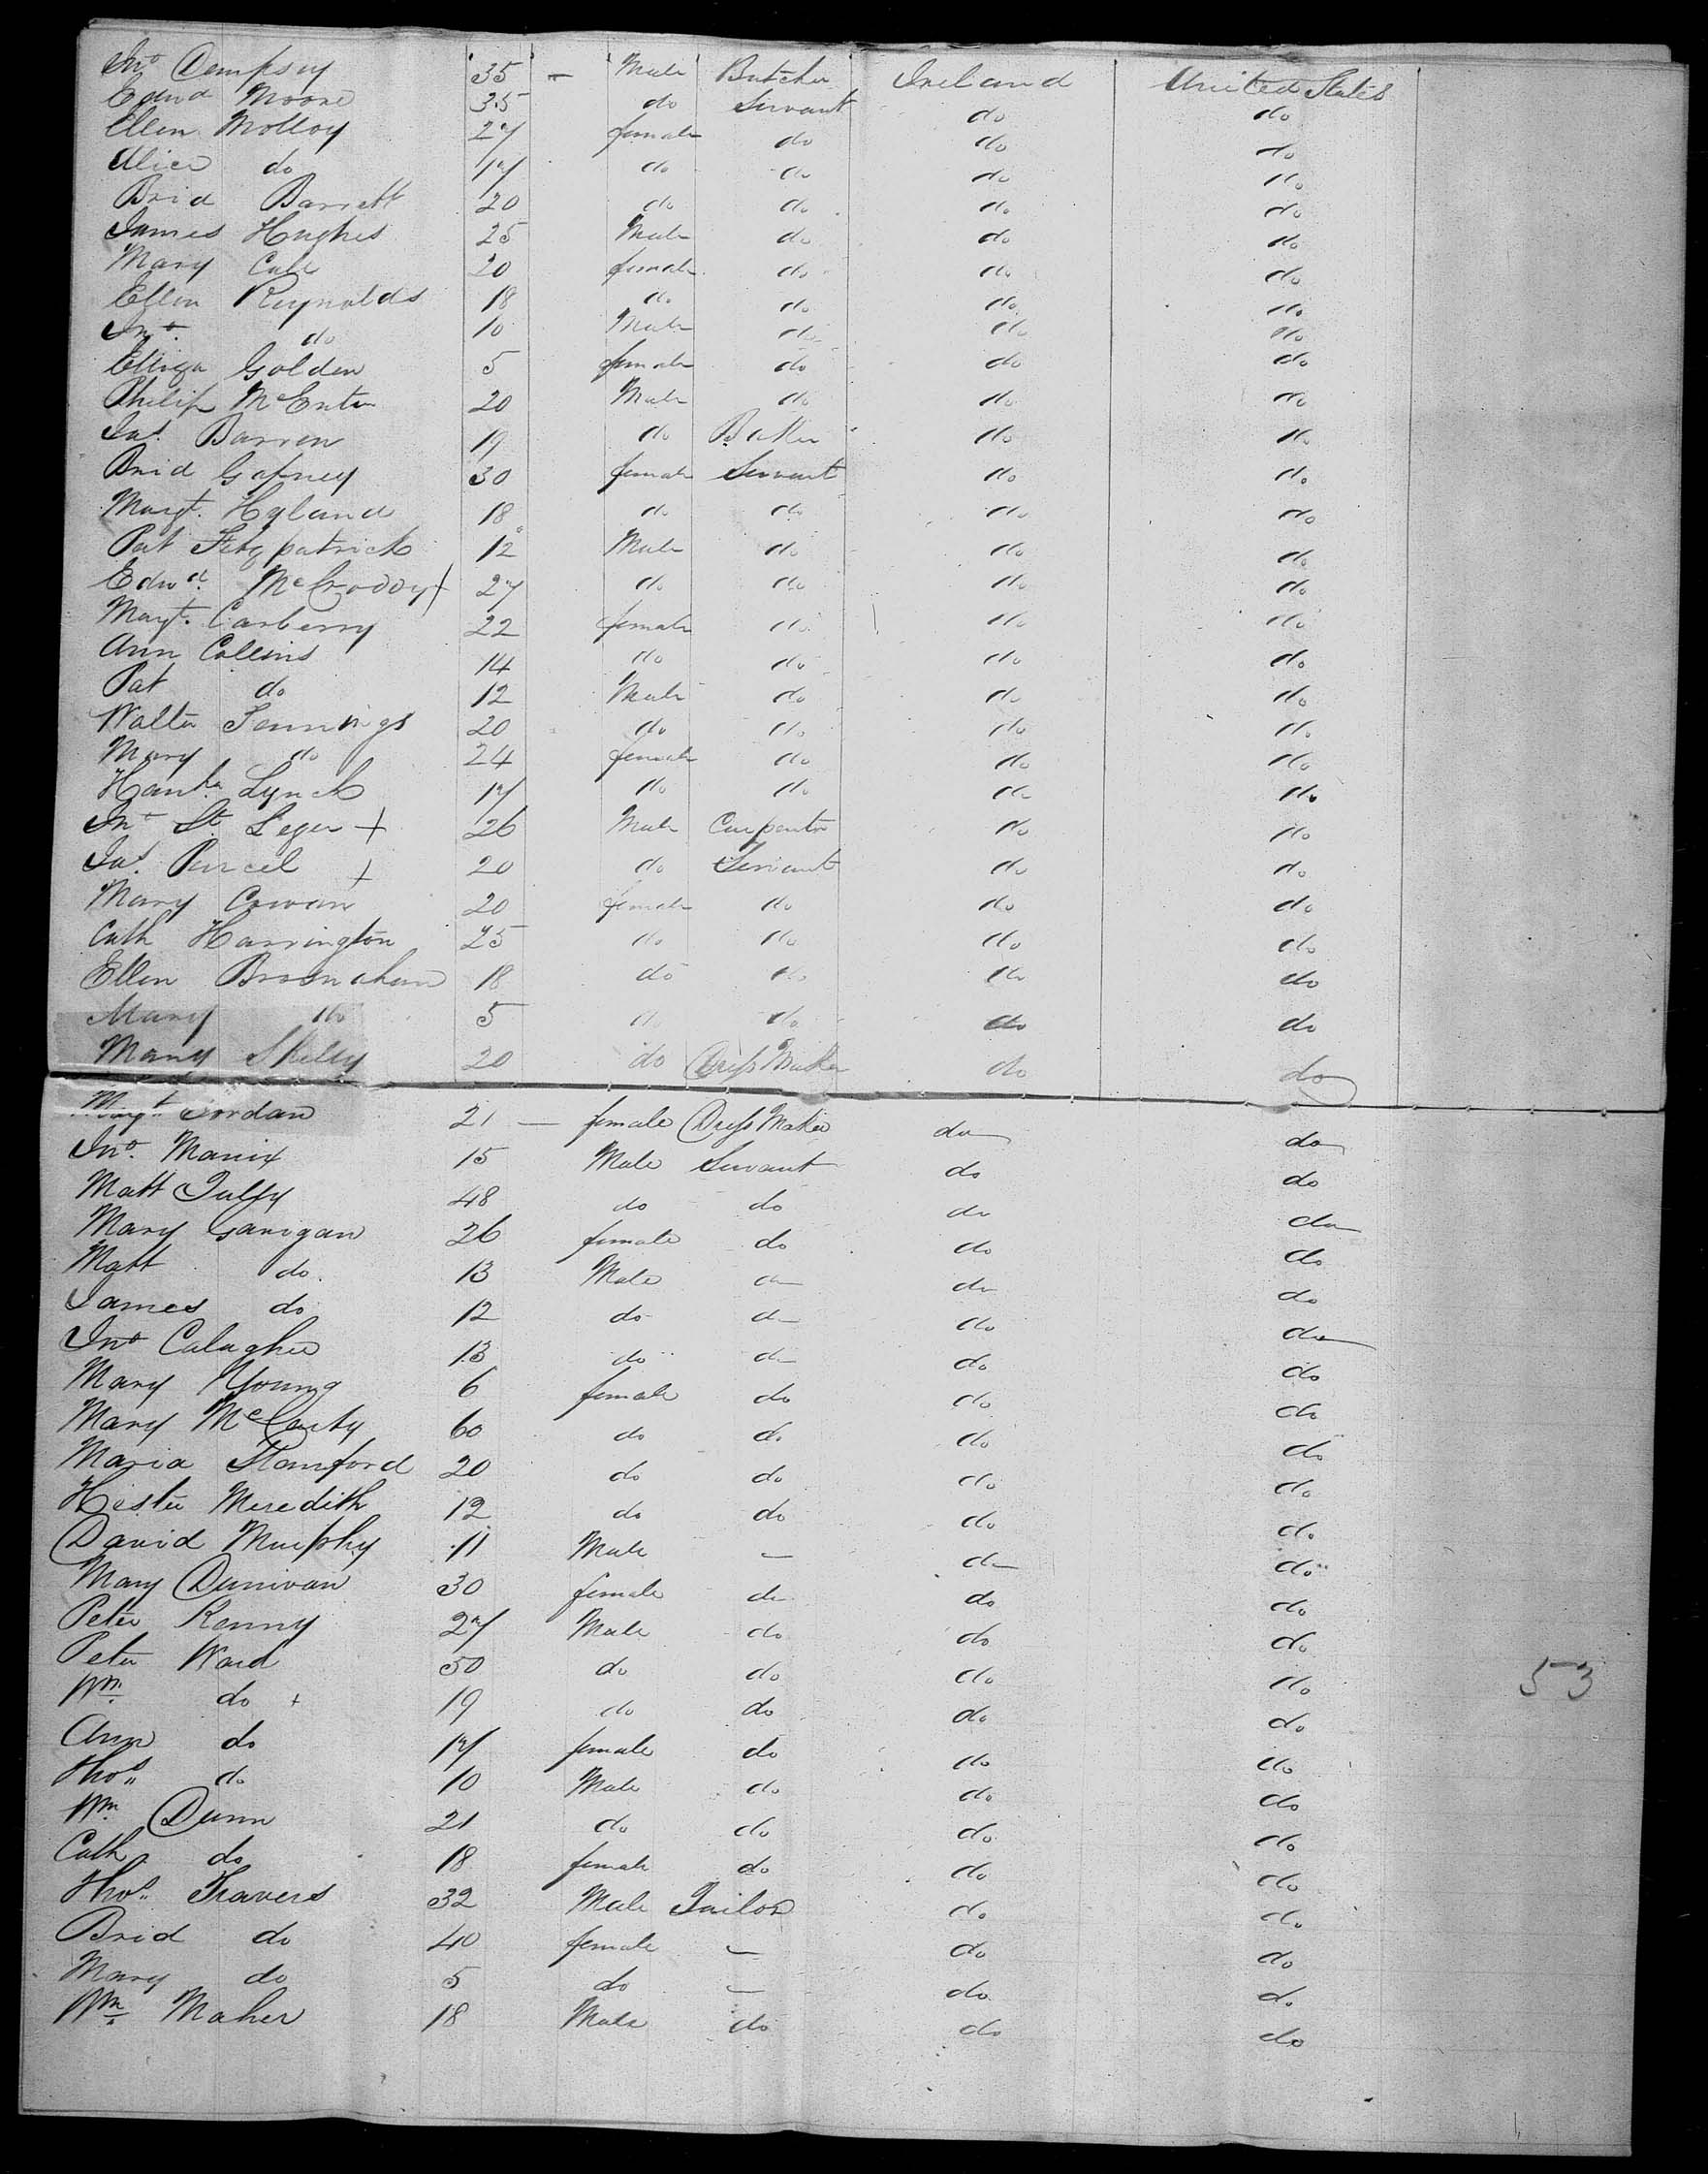 Jno Dempsey 35 — Male Butcher Ireland United States
Edwd Moore 35 do Servant do do
Ellen Molloy 27 female do do do
Alice do 17 do do do do
Brid Barrett 20 do do do do
James Hughes 25 Male do do do
Mary Cale 20 female do do do
Ellen Reynolds 18 do do do do
Jno do 10 Male do do do
Eliza Golden 5 female do do do
Philip McEnter 20 Male do do do
Jas. Barren 19 do Baker do do
Brid Gafney 30 female Servant do do
Margt. Hyland 18 do do do do
Pat Fitzpatrick 12 Male do do do
Edwd. McGroddy + 27 do do do do
Margt. Carberry 22 female do do do
Ann Collins 14 do do do do
Pat do 12 Male do do do
Walter Jennings 20 do do do do
Mary do 24 female do do do
Hanh Lynch 17 do do do do
Jno St. Leger + 26 Male Carpenter do do
Jas. Purcel + 20 do Servant do do
Mary Cowan 20 female do do do
Cath Harrington 25 do do do do
Ellen Brosnahan 18 do do do do
Mary do 5 do do do do
Mary Skelly 20 do Dress Maker do do
Margt Jordan 21 — female Dress Maker do do
Jno. Manix 15 Male Servant do do
Matt Tully 48 do do do do
Mary Garigan 26 female do do do
Matt do 13 Male do do do
James do 12 do do do do
Jno Calagher 13 do do do do
Mary Young 6 female do do do
Mary McCarty 60 do do do do
Maria Stamford 20 do do do do
Hester Meredith 12 do do do do
David Murphy 11 Male — do do
Mary Dunivan 30 female do do do
Peter Kenny 27 Male do do do
Peter Ward 50 do do do do
Wm. do + 19 do do do do
Ann do 17 female do do do
Thos do 10 Male do do do
Wm. Dunn 21 do do do do
Cath do 18 female do do do
Thos Travers 32 Male Tailor do do
Brid do 40 female — do do
Mary do 5 do — do do
Wm. Maher 18 Male do do do
53